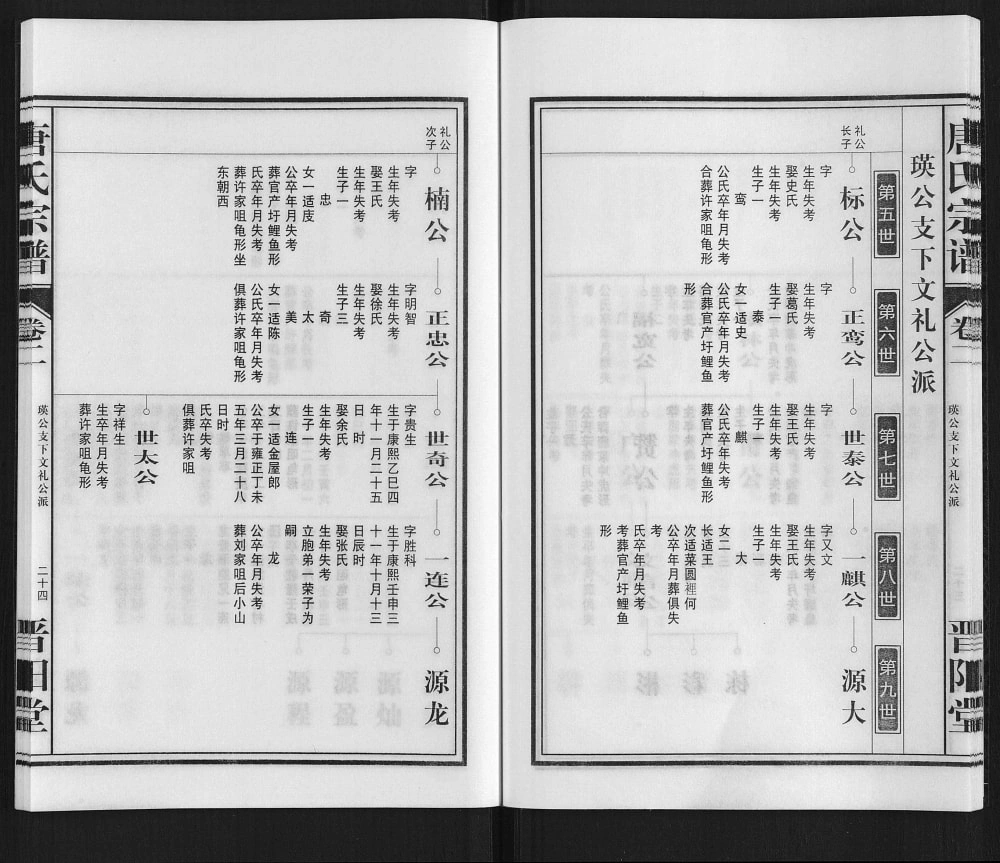 唐氏宗谱
卷二
瑛公支下文礼公派
晋阳堂
瑛公支下文礼公派
第五世
第六世
第七世
第八世
第九世
礼公
长子
标公
字
生年失考
娶史氏
生年失考
生子一
鸾
公氏卒年月失考
合葬许家咀龟形
正鸾公
字
生年失考
娶葛氏
生子一
泰
女一适史
公氏卒年月失考
合葬官产圩鲤鱼
形
世泰公
字
生年失考
娶王氏
生年失考
生子一
麒
公氏卒年失考
葬官产圩鲤鱼形
一麒公
字文文
生年失考
娶王氏
生年失考
生子一
大
女二
长适王
次适菜圆裡何
公卒年月葬俱失
考
氏卒年月失考
考葬官产圩鲤鱼
形
源大
礼公
次子
楠公
字
生年失考
娶王氏
生年失考
生子一
忠
女一适庋
公卒年月失考
葬官产圩鲤鱼形
氏卒年月失考
葬许家咀龟形坐
东朝西
正忠公
字明智
生年失考
娶徐氏
生年失考
生子三
奇
太
美
女一适陈
公氏卒年月失考
俱葬许家咀龟形
世奇公
字贵生
生于康熙乙巳四
年十一月二十五
日　时
娶余氏
生年失考
生子一
连
女一适金屋郎
公卒于雍正丁未
五年三月二十八
日时
氏卒失考
俱葬许家咀
一连公
字胜科
生于康熙壬申三
十一年十月十三
日辰时
娶张氏
生年失考
立胞弟一荣子为
嗣
龙
公卒年月失考
葬刘家咀后小山
源龙
世太公
字祥生
生卒年月失考
葬许家咀龟形
唐氏宗谱
卷二
瑛公支下文礼公派
二十四
晋阳堂